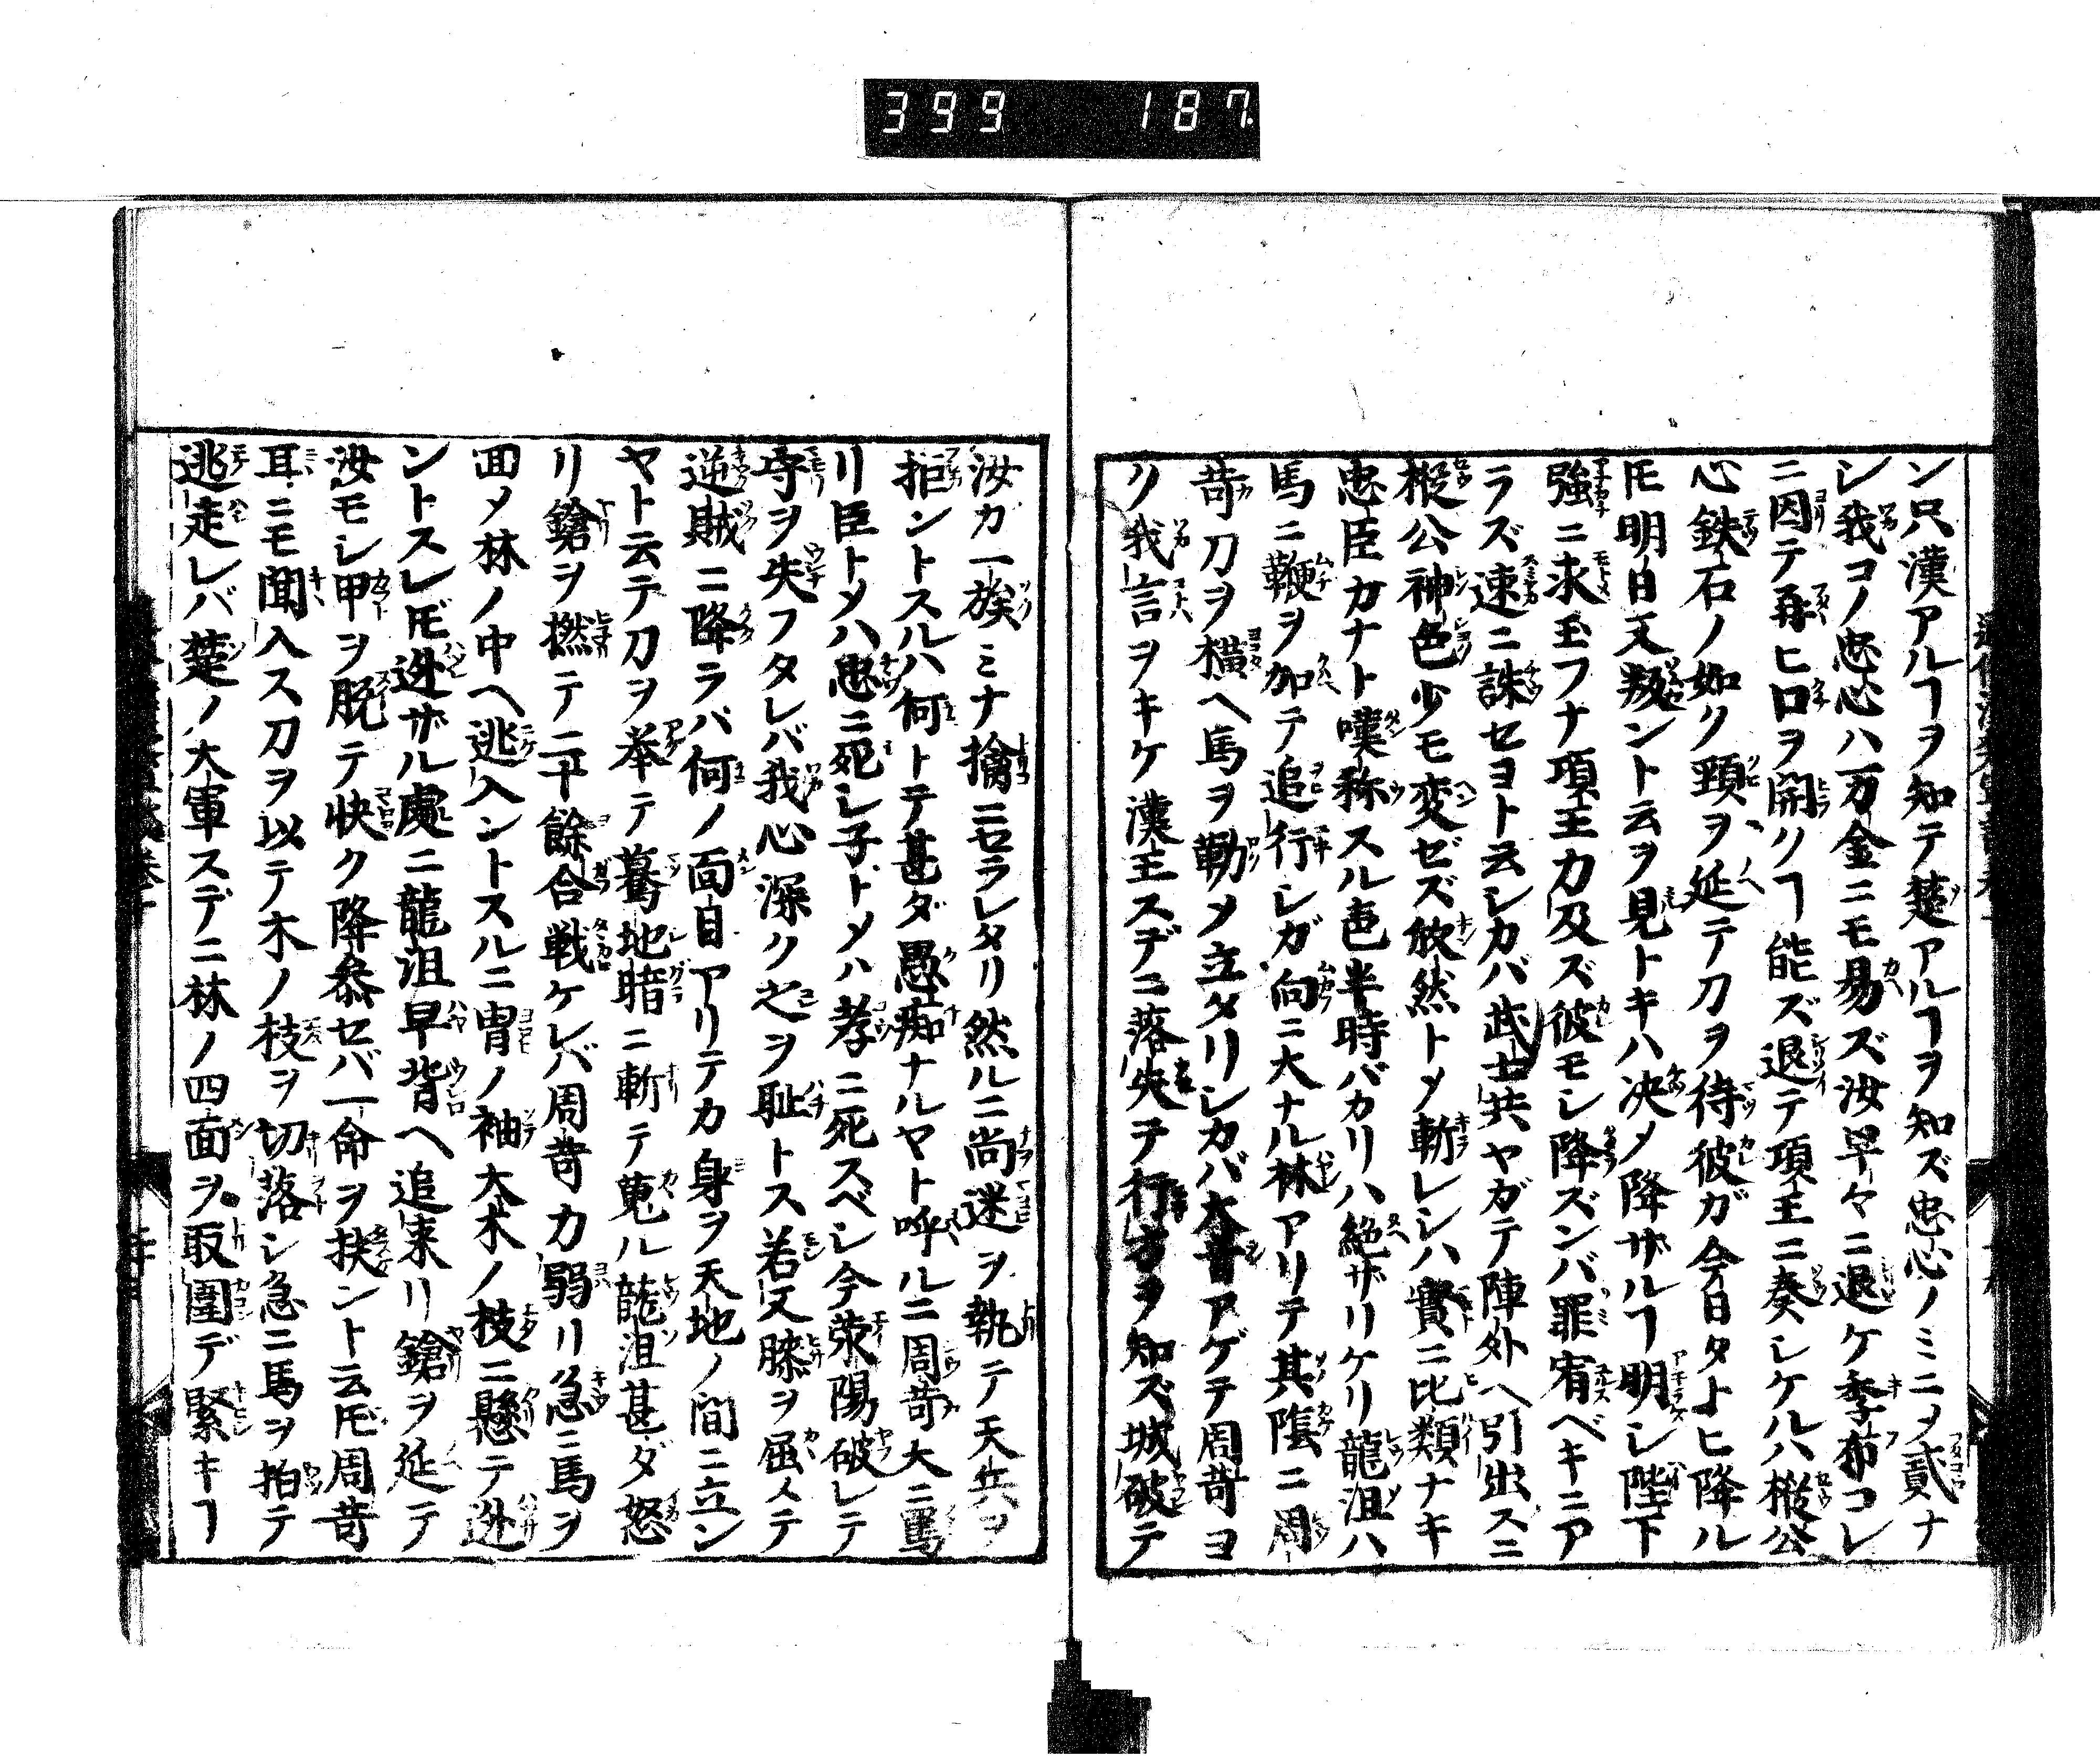 399 187
ン只漢アルヿヲ知テ楚アルヿヲ知ズ忠心ノミニヲ貳ナ
シ我コノ忠心ハ万金ニモ易ズ汝早々ニ退ケ季布コレ
ニ因テ再ヒ口ヲ開クヿ能ズ退テ項王ニ奏シケルハ樅公
心鉄石ノ如ク頸ヲ延テ刀ヲ待彼ガ今日タトヒ降ル
𪜈明日又叛ントスヲ見トキハ决メ降ザルヿ明シ陛下
強ニ求玉フナ項王力及ズ彼モシ降ズンバ罪宥ベキニア
ラズ速ニ誅セヨト云シカバ武士共ヤガテ陣外ヘ引出スニ
樅公神色少モ変ゼズ欣然トメ斬レシハ實ニ比類ナキ
忠臣カナト嘆称スル声半時バカリハ絶ザリケリ龍沮ハ
馬ニ鞭ヲ加テ追行シガ向ニ大ナル林アリテ其蔭ニ周
苛刀ヲ横ヘ馬ヲ勒メ立タリシカバ大音アゲテ周苛ヨ
リ我言ヲキケ漢王スデニ落失テ行方ヲ知ズ城破テ
汝カ一族ミナ擒ニセラレタリ然ルニ尚迷ヲ執テ天兵ヲ
拒ントスルハ何トテ甚ダ愚痴ナルヤト呼ルニ周苛大ニ罵
リ臣トメハ忠ニ死シ子トメハ孝ニ死スベシ今滎陽破レテ
守ヲ失フタレバ我心深ク之ヲ耻トス若又膝ヲ屈メテ
逆賊ニ降ラバ何ノ面目アリテカ身ヲ天地ノ間ニ立ン
ヤト云テ刀ヲ挙テ驀地暗ニ斬テ蒐ル龍沮甚ダ怒
リ鎗ヲ撚テ二十餘合戦ケレバ周苛力弱リ急ニ馬ヲ
囬メ林ノ中ヘ逃入ントスルニ冑ノ袖大木ノ枝ニ懸テ迯
ントスレ𪜈迯ザル處ニ龍沮早背ヘ追来リ鎗ヲ延テ
汝モシ甲ヲ脱テ快ク降参セバ一命ヲ扶ント云𪜈周苛
耳ニモ聞入ス刀ヲ以テ木ノ枝ヲ切落シ急ニ馬ヲ拍テ
逃走レバ楚ノ大軍スデニ林ノ四面ヲ取圍デ緊キヿ